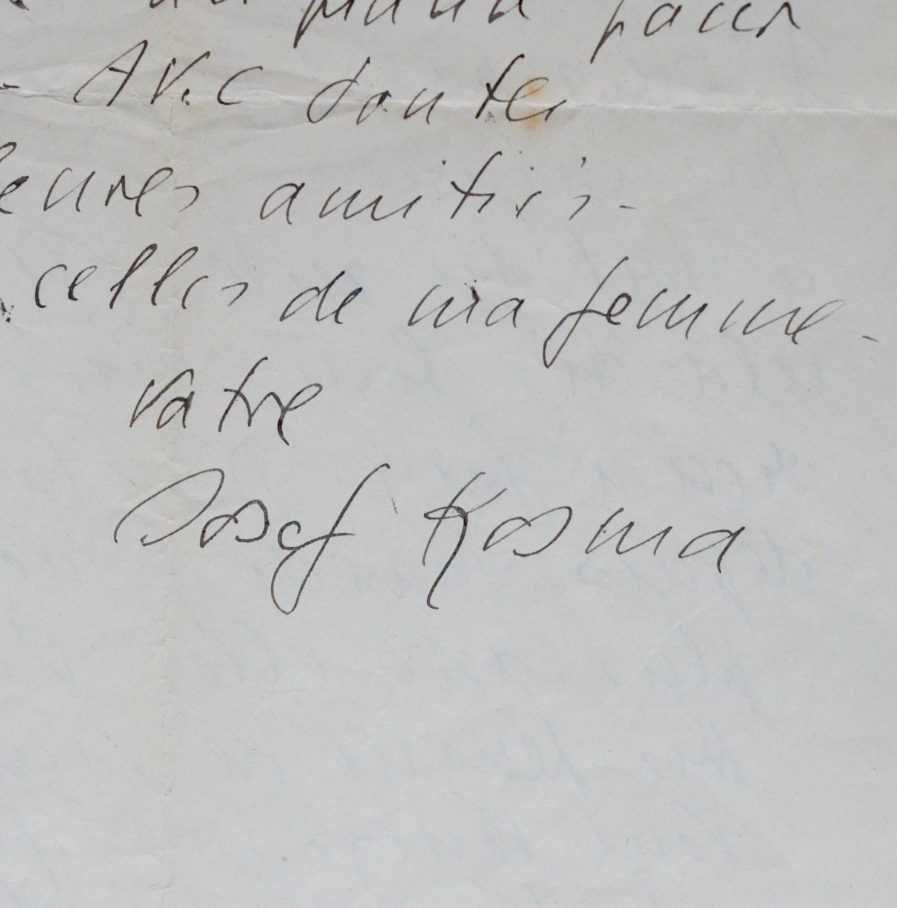 au piano pour
- Avec toutes
leures amitiés -
celles de ma femme -
votre
Josef Kosma